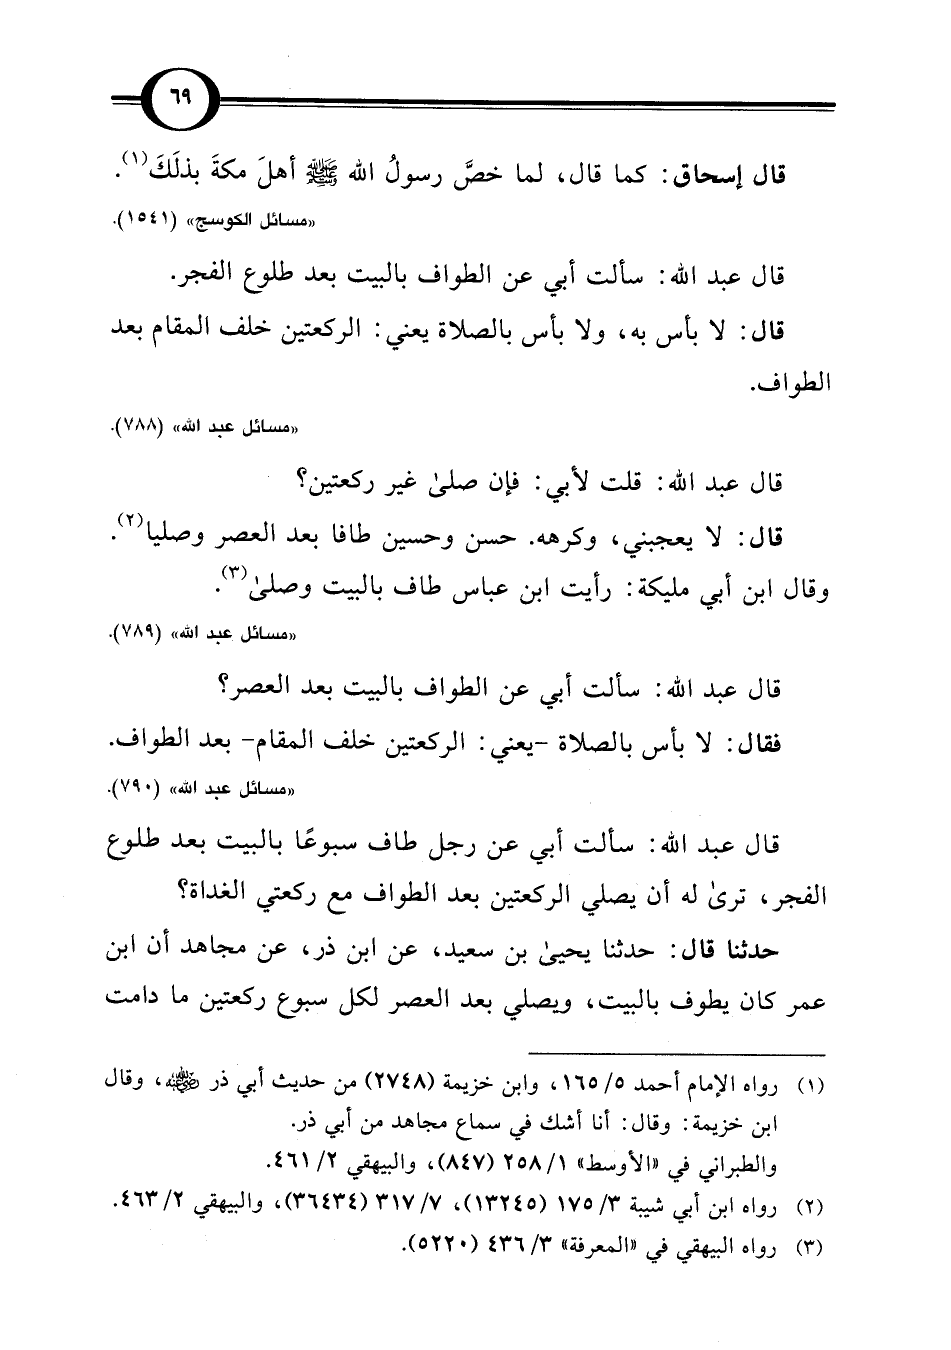 ٦٩
قال إسحاق: كما قال، لما خصَّ رسولُ الله ﷺ أهلَ مكةَ بذلَكَ(١).
«مسائل الكوسج» (١٥٤١).
قال عبد الله: سألت أبي عن الطواف بالبيت بعد طلوع الفجر.
قال: لا بأس به، ولا بأس بالصلاة يعني: الركعتين خلف المقام بعد
الطواف.
«مسائل عبد الله» (٧٨٨).
قال عبد الله: قلت لأبي: فإن صلىٰ غير ركعتين؟
قال: لا يعجبني، وكرهه. حسن وحسين طافا بعد العصر وصليا(٢).
وقال ابن أبي مليكة: رأيت ابن عباس طاف بالبيت وصلىٰ(٣).
«مسائل عبد الله» (٧٨٩).
قال عبد الله: سألت أبي عن الطواف بالبيت بعد العصر؟
فقال: لا بأس بالصلاة -يعني: الركعتين خلف المقام- بعد الطواف.
«مسائل عبد الله» (٧٩٠).
قال عبد الله: سألت أبي عن رجل طاف سبوعًا بالبيت بعد طلوع
الفجر، ترىٰ له أن يصلي الركعتين بعد الطواف مع ركعتي الغداة؟
حدثنا قال: حدثنا يحيىٰ بن سعيد، عن ابن ذر، عن مجاهد أن ابن
عمر كان يطوف بالبيت، ويصلي بعد العصر لكل سبوع ركعتين ما دامت
(١) رواه الإمام أحمد ٥/ ١٦٥، وابن خزيمة (٢٧٤٨) من حديث أبي ذر رضي الله عنه، وقال
ابن خزيمة: وقال: أنا أشك في سماع مجاهد من أبي ذر.
والطبراني في «الأوسط» ١/ ٢٥٨ (٨٤٧)، والبيهقي ٢/ ٤٦١.
(٢) رواه ابن أبي شيبة ٣/ ١٧٥ (١٣٢٤٥)، ٧/ ٣١٧ (٣٦٤٣٤)، والبيهقي ٢/ ٤٦٣.
(٣) رواه البيهقي في «المعرفة» ٣/ ٤٣٦ (٥٢٢٠).